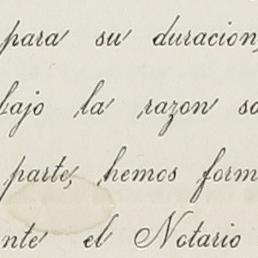 para su duracion,
bajo la razon so
parte, hemos form
nte el Notario